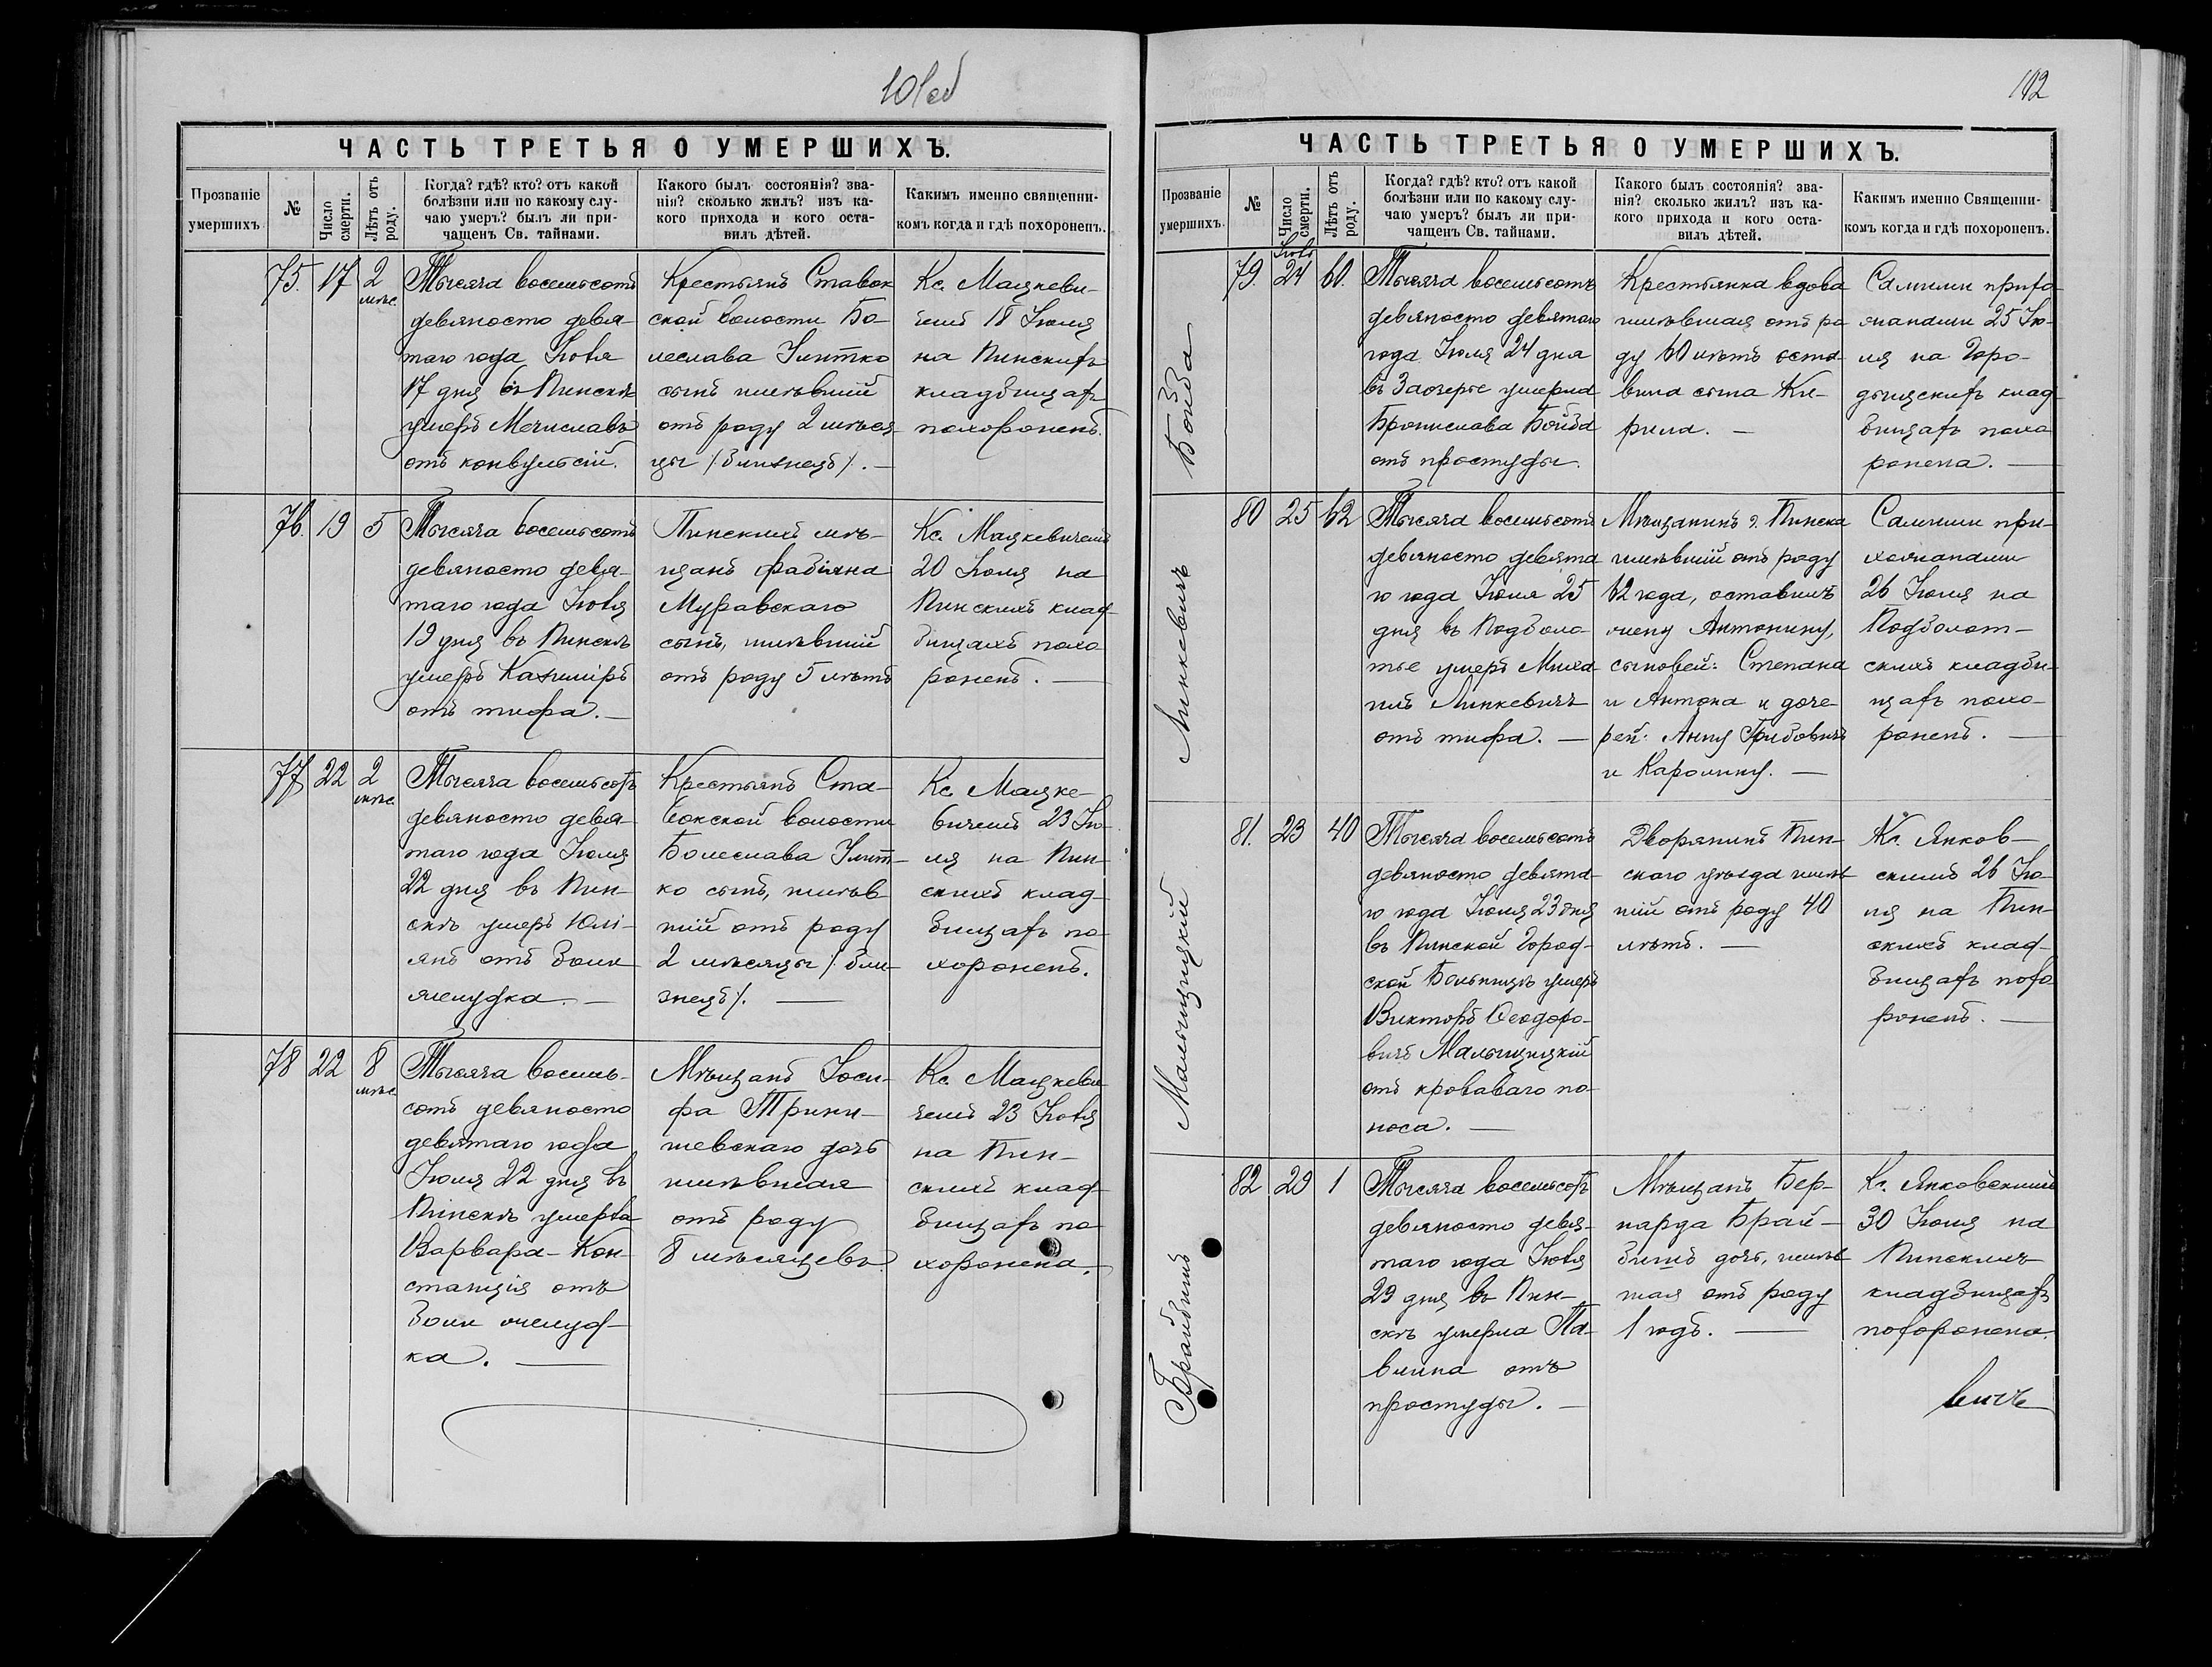 101об
ЧАСТЬ ТРЕТЬЯ О УМЕРШИХЪ.
Прозваніе
умершихъ.
№
Число
смерти.
Лѣтъ отъ
роду.
Когда? гдѣ? кто? отъ какой
болѣзни или по какому слу-
чаю умеръ? былъ ли при-
чащенъ Св. тайнами.
Какого былъ состоянія? зва-
нія? сколько жилъ? изъ ка-
кого прихода и кого оста-
вилъ дѣтей.
Какимъ именно священни-
комъ когда и гдѣ похороненъ.
75.
17
2
мѣс.
Тысяча восемьсотъ
девяносто девя-
таго года Іюля
17 дня въ Пинскѣ
умеръ Мечиславъ
отъ конвульсій.
Крестьянъ Ставок
ской волости Бо-
леслава
сынъ имѣвшій
отъ роду 2 мѣся-
цы /близнецъ/. —
Кс. Мацкеви-
чемъ 18 Іюля
на Пинскихъ
кладбищахъ
похороненъ.
76.
19
5
Тысяча восемьсотъ
девяносто девя-
таго года Іюля
19 дня въ Пинскѣ
умеръ Казиміръ
отъ тифа. —
Пинскихъ мѣ-
щанъ Фабіяна
Муравскаго
сынъ, имѣвшій
отъ роду 5 лѣтъ
Кс. Мацкевичемъ
20 Іюля на
Пинскихъ клад-
бищахъ похо
роненъ. —
77
22
2
мѣс.
Тысяча восемьсотъ
девяносто девя-
таго года Іюля
22 дня въ Пин-
скѣ умеръ Юлі-
янъ отъ боли
желудка. —
Крестьянъ Ста-
вокской волости
Болеслава
ко сынъ, имѣв
шій отъ роду
2 мѣсяцы /бли-
знецъ/. —
Кс. Мацке-
вичемъ 23 Ію-
ля на Пин-
скихъ клад-
бищахъ по-
хороненъ.
78
22
8
мѣс.
Тысяча восемь-
сотъ девяносто
девятаго года
Іюля 22 дня въ
Пинскѣ умерла
Варвара-Кон-
станція отъ
боли желуд-
ка. —
Мѣщанъ Іоси-
фа Трини-
шевскаго дочь
имѣвшая
отъ роду
8 мѣсяцевъ
Кс. Мацкеви-
чемъ 23 Іюля
на Пин-
скихъ клад-
бищахъ по-
хоронена.
102
ЧАСТЬ ТРЕТЬЯ О УМЕРШИХЪ.
Прозваніе
умершихъ.
№
Число
смерти.
Лѣтъ отъ
роду.
Когда? гдѣ? кто? отъ какой
болѣзни или по какому слу-
чаю умеръ? былъ ли при-
чащенъ Св. тайнами.
Какого былъ состоянія? зва-
нія? сколько жилъ? изъ ка-
кого прихода и кого оста-
вилъ дѣтей.
Какимъ именно Священни-
комъ когда и гдѣ похороненъ.
Бойба
79.
Іюля
24
60.
Тысяча восемьсотъ
девяносто девятаго
года Іюля 24 дня
въ Заозерье умерла
Брониславa Бойба
отъ простуды.
Крестьянка вдова
имѣвшая отъ ро
ду 60 лѣтъ оста
вила сына Ки-
рила. —
Самими прихо
жанами 25 Ію-
ля на Горо-
дыщскихъ клад-
бищахъ похо
ронена. —
Линкевичъ
80
25
62
Тысяча восемьсотъ
девяносто девята
го года Іюля 25
дня въ Подболо-
тье умеръ Миха-
илъ Линкевичъ
отъ тифа. —
Мѣщанинъ г. Пинска
имѣвшій отъ роду
62 года, оставилъ
жену Антонину,
сыновей: Степана
и Антона и доче
рей: Анну Грибовичъ
и Каролину. —
Самими при-
хожанами
26 Іюля на
Подболот-
скихъ кладби-
щахъ похо-
роненъ. —
Мальчицкій
81.
23
40
Тысяча восемьсотъ
девяносто девята-
го года Іюля 23 дня
въ Пинской Город-
ской Больницѣ умеръ
Викторъ Ѳеодоро-
вичъ Мальчицкій
отъ кроваваго по-
носа. —
Дворянинъ Пин-
скаго уѣзда имѣв
шій отъ роду 40
лѣтъ. —
Кс. Янков-
скимъ 26 Ію-
ля на Пин-
скихъ клад-
бищахъ похо
роненъ. —
Брайбишъ
82
29
1
Тысяча восемьсотъ
девяносто девя-
таго года Іюля
29 дня въ Пин-
скѣ умерла Па-
влина отъ
простуды. —
Мѣщанъ Бер-
нарда Брай-
бишъ дочь, имѣв
шая отъ роду
1 годъ. —
Кс. Янковскимъ
30 Іюля на
Пинскихъ
кладбищахъ
похоронена.
вичъ